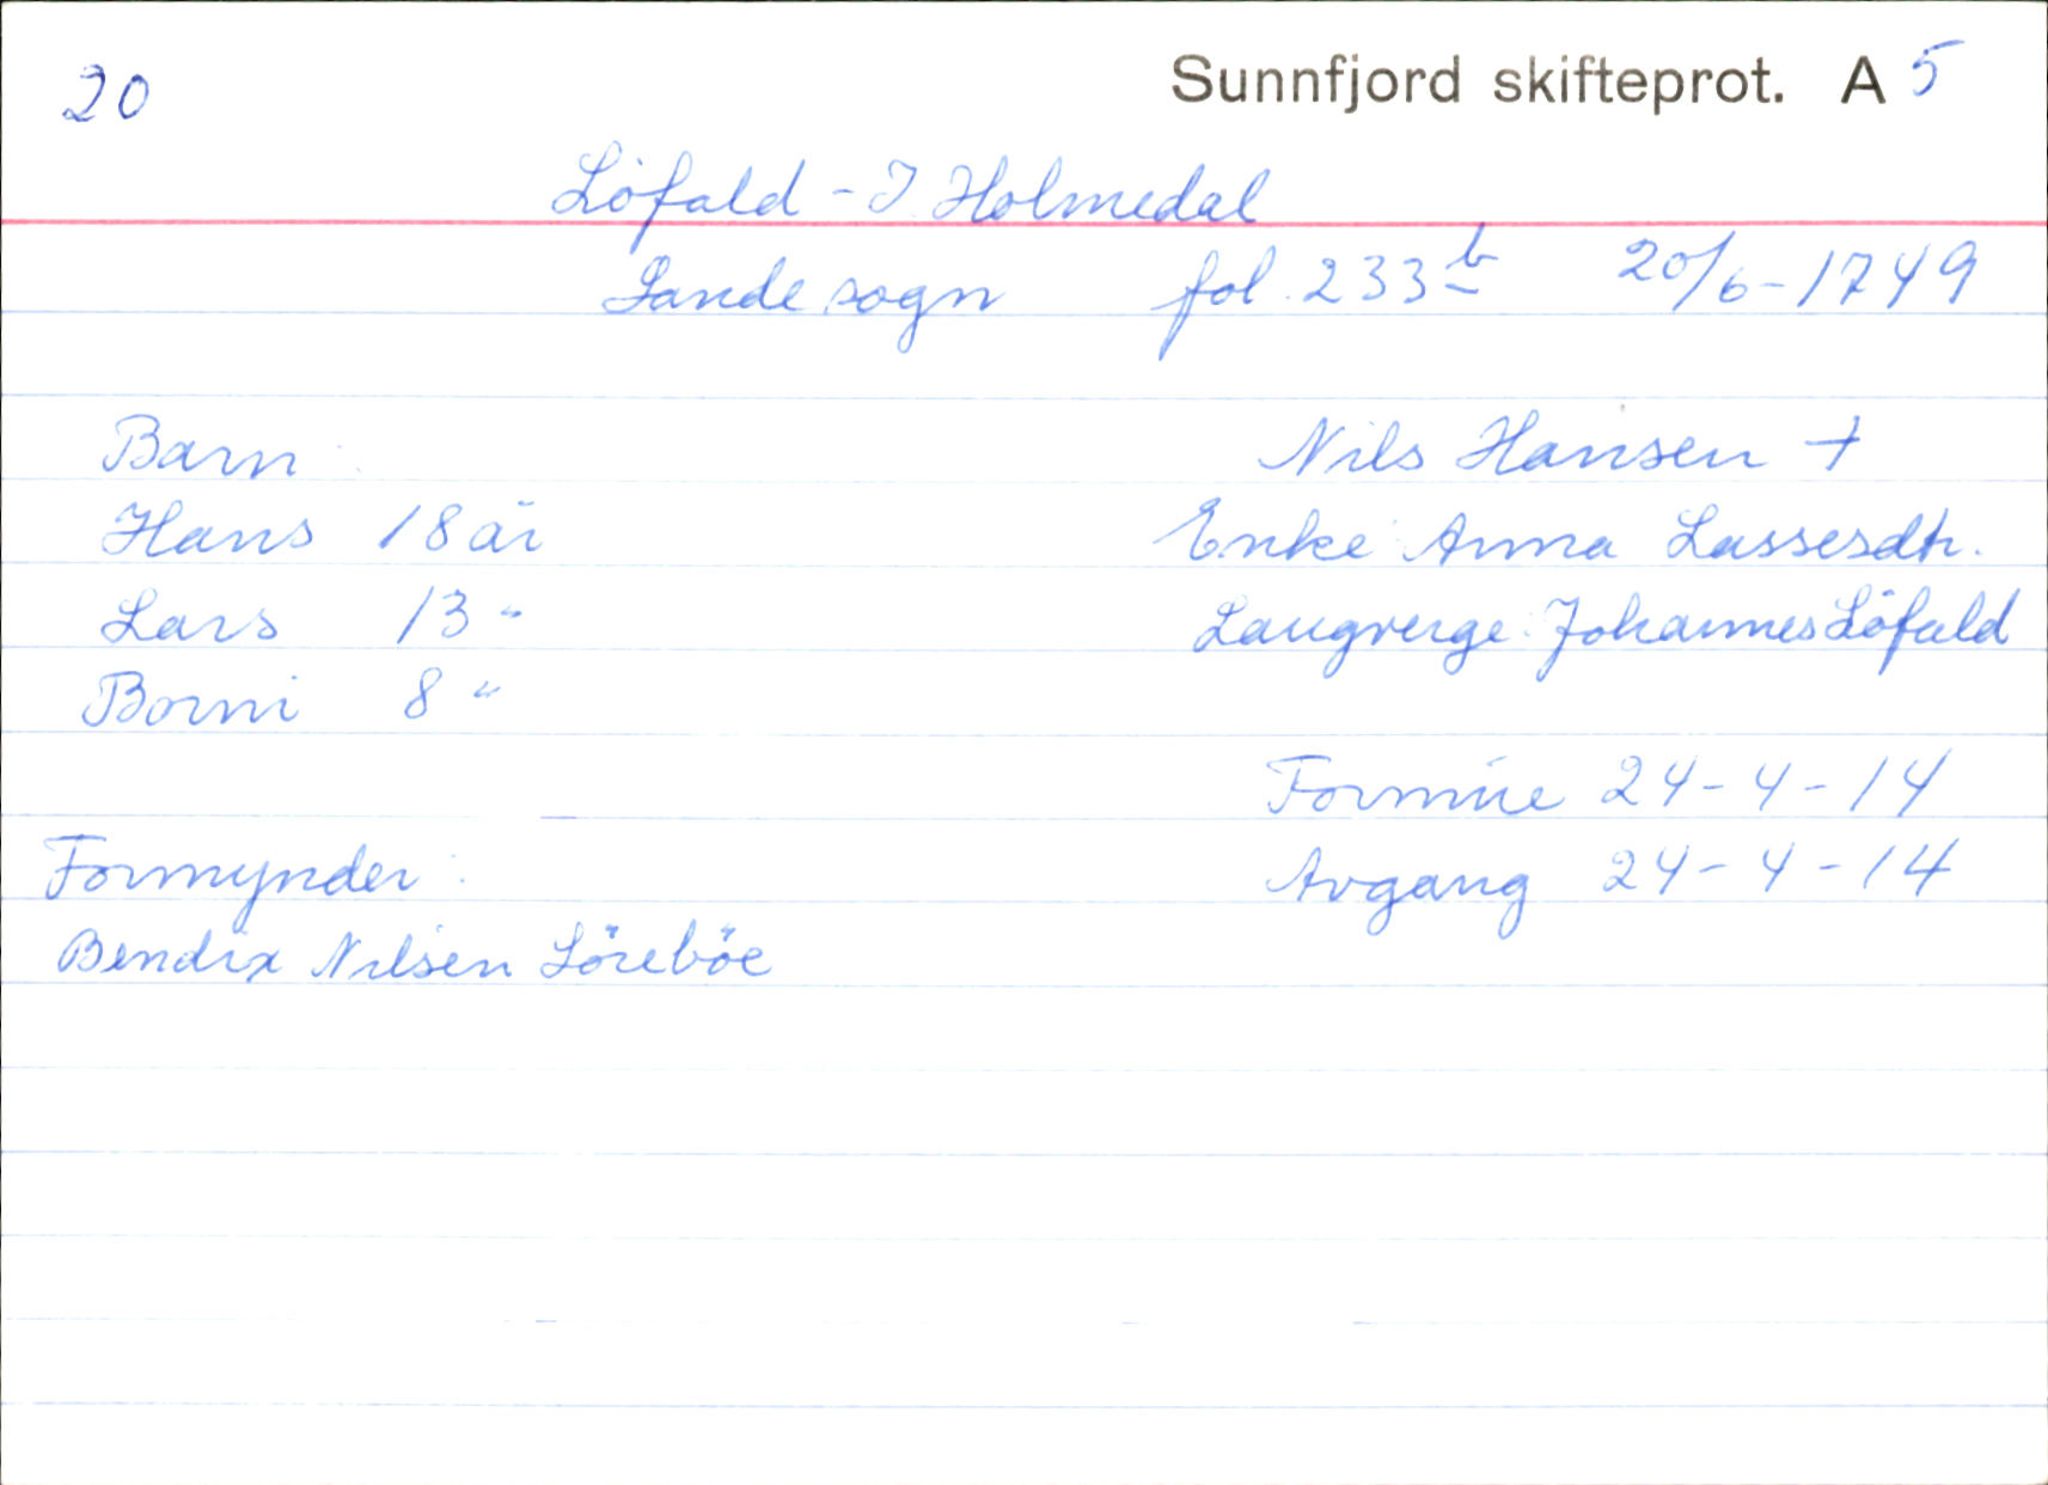 20
Sunnfjord skifteprot. A 5
Löfald - I. Holmedal
Sande sogn fol. 233 b 20/6-1749
Barn:
Hans 18 år
Lars 13 "
Borni 8 "
Formynder:
Bendix Nilsen Löreböe
Nils Hansen +
Enke: Anna Lassesdtr.
Laugverge: Johannes Löfald
Formue 24-4-14
Avgang 24-4-14